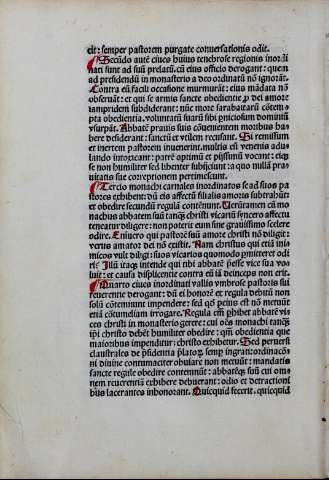 cit: semper pastorem purgate conuersationis odit.
Secūdo autē ciues huius tenebrose regionis inordi
nati sunt ad suū prelatū. cū eius officio derogant: quem
ad presidendū in monasterio a deo ordinatū nō ignorāt.
Contra eū facili occasione murmurāt: eius mādata nō
obseruāt: et qui se armis sancte obedientie ꝓ dei amore
sanprident subdiderant: nūc more sarabaitarū cōtem
pta obedientia. voluntatū suarū sibi pniciosum dominiū
vsurpāt. Abbatē prauis suis cōuenientem moribus ha
bere desiderant: sanctū et vtilem recusant. Si remissum
et inertem pastorem inuenerint. multis eū venenis adu
lando intoxicant: patrē optimū et pijssimū vocant: eiqꝫ
se non humiliter sed libenter subijciunt: a quo nullā pra
uitatis sue correptionem pertimescunt.
Tercio monachi carnales inordinatos se ad suos pa
stores exhibent: dū eis affectū filialis amoris subtrahūt
et obedire secundū regulā contēnunt. Veneramen eū mo
nachus abbatem suū tanqꝫ christi vicariū syncero affectu
teneatur diligere: non poterit eum sine grauissimo scelere
odire. Enimuero qui pastorē suū amore christi nō diligit:
verus amator dei nō existit. Nam christus qui etiā inimi
micos vult diligi: suos vicarios quomodo pmitteret odi
ri: Illū itaqꝫ intende qui tibi abbatē pesse vice sua vo
luit: et causa displicente contra eū iā deinceps non erit.
Quarto ciues inordinati vallis vmbrose pastoris sui
reuerentie derogant: dū ei honorē et regula debitū non
solū cōtemnunt impendere: sed qd peius est nō metuūt
etiā cōtumeliam irrogare. Regula em ꝓhibet abbatē vi
ces christi in monasterio gerere: cui oēs monachi tanqꝫ
ipi christo debēt humiliter obedire: qm obedientia que
maioribus impenditur: christo exhibetur. Sed peruersi
claustrales de psidentia platoꝝ semp ingrati: ordinacō
ni diuine contumaciter obuiare non metuūt: mandatis
sancte regule obedire contemnūt: abbatēqꝫ suū cui om
nem reuerentiā exhibere debuerant: odio et detractioni
bus lacerantes inhonorant. Quicquid fecerit, quicquid